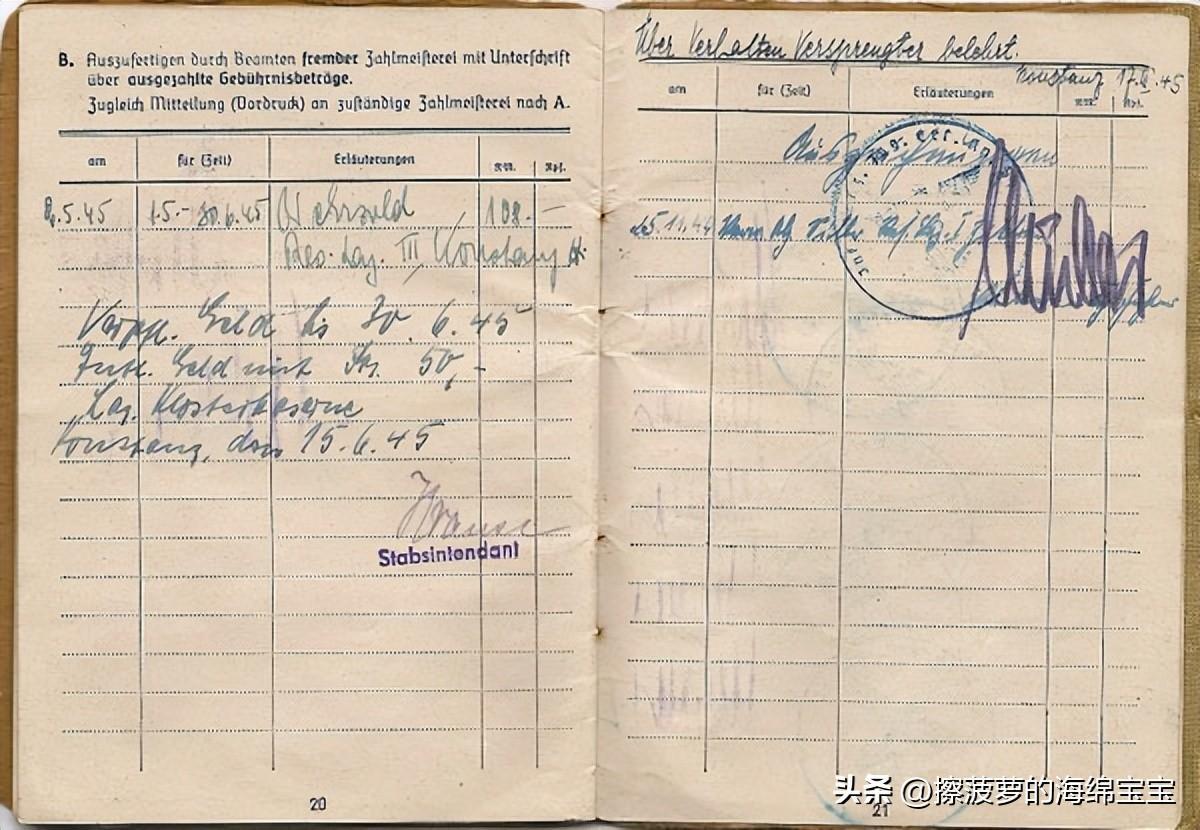 B. Auszufertigen durch Beamten fremder Zahlmeisterei mit Unterschrift
über ausgezahlte Gebührnisbeträge.
Zugleich Mitteilung (Vordruck) an zuständige Zahlmeisterei nach A.
am für (Zeit) Erläuterungen RM. Rpf.
.5.45 1.5.- 30.6.45 Wehrsold 108.-
Res. Laz. III, Konstanz
Verpfl. Geld bis 30.6.45
Geld mit 50,-
Laz. Klosterkaserne
Konstanz, den 15.6.45
Krause
Stabsintendant
20
Über Verhalten Versprengter belehrt.
Konstanz 17.45
am für (Zeit) Erläuterungen RM. Rpf.
Auszeichnungen
25.11.44
21
头条 @擦菠萝的海绵宝宝